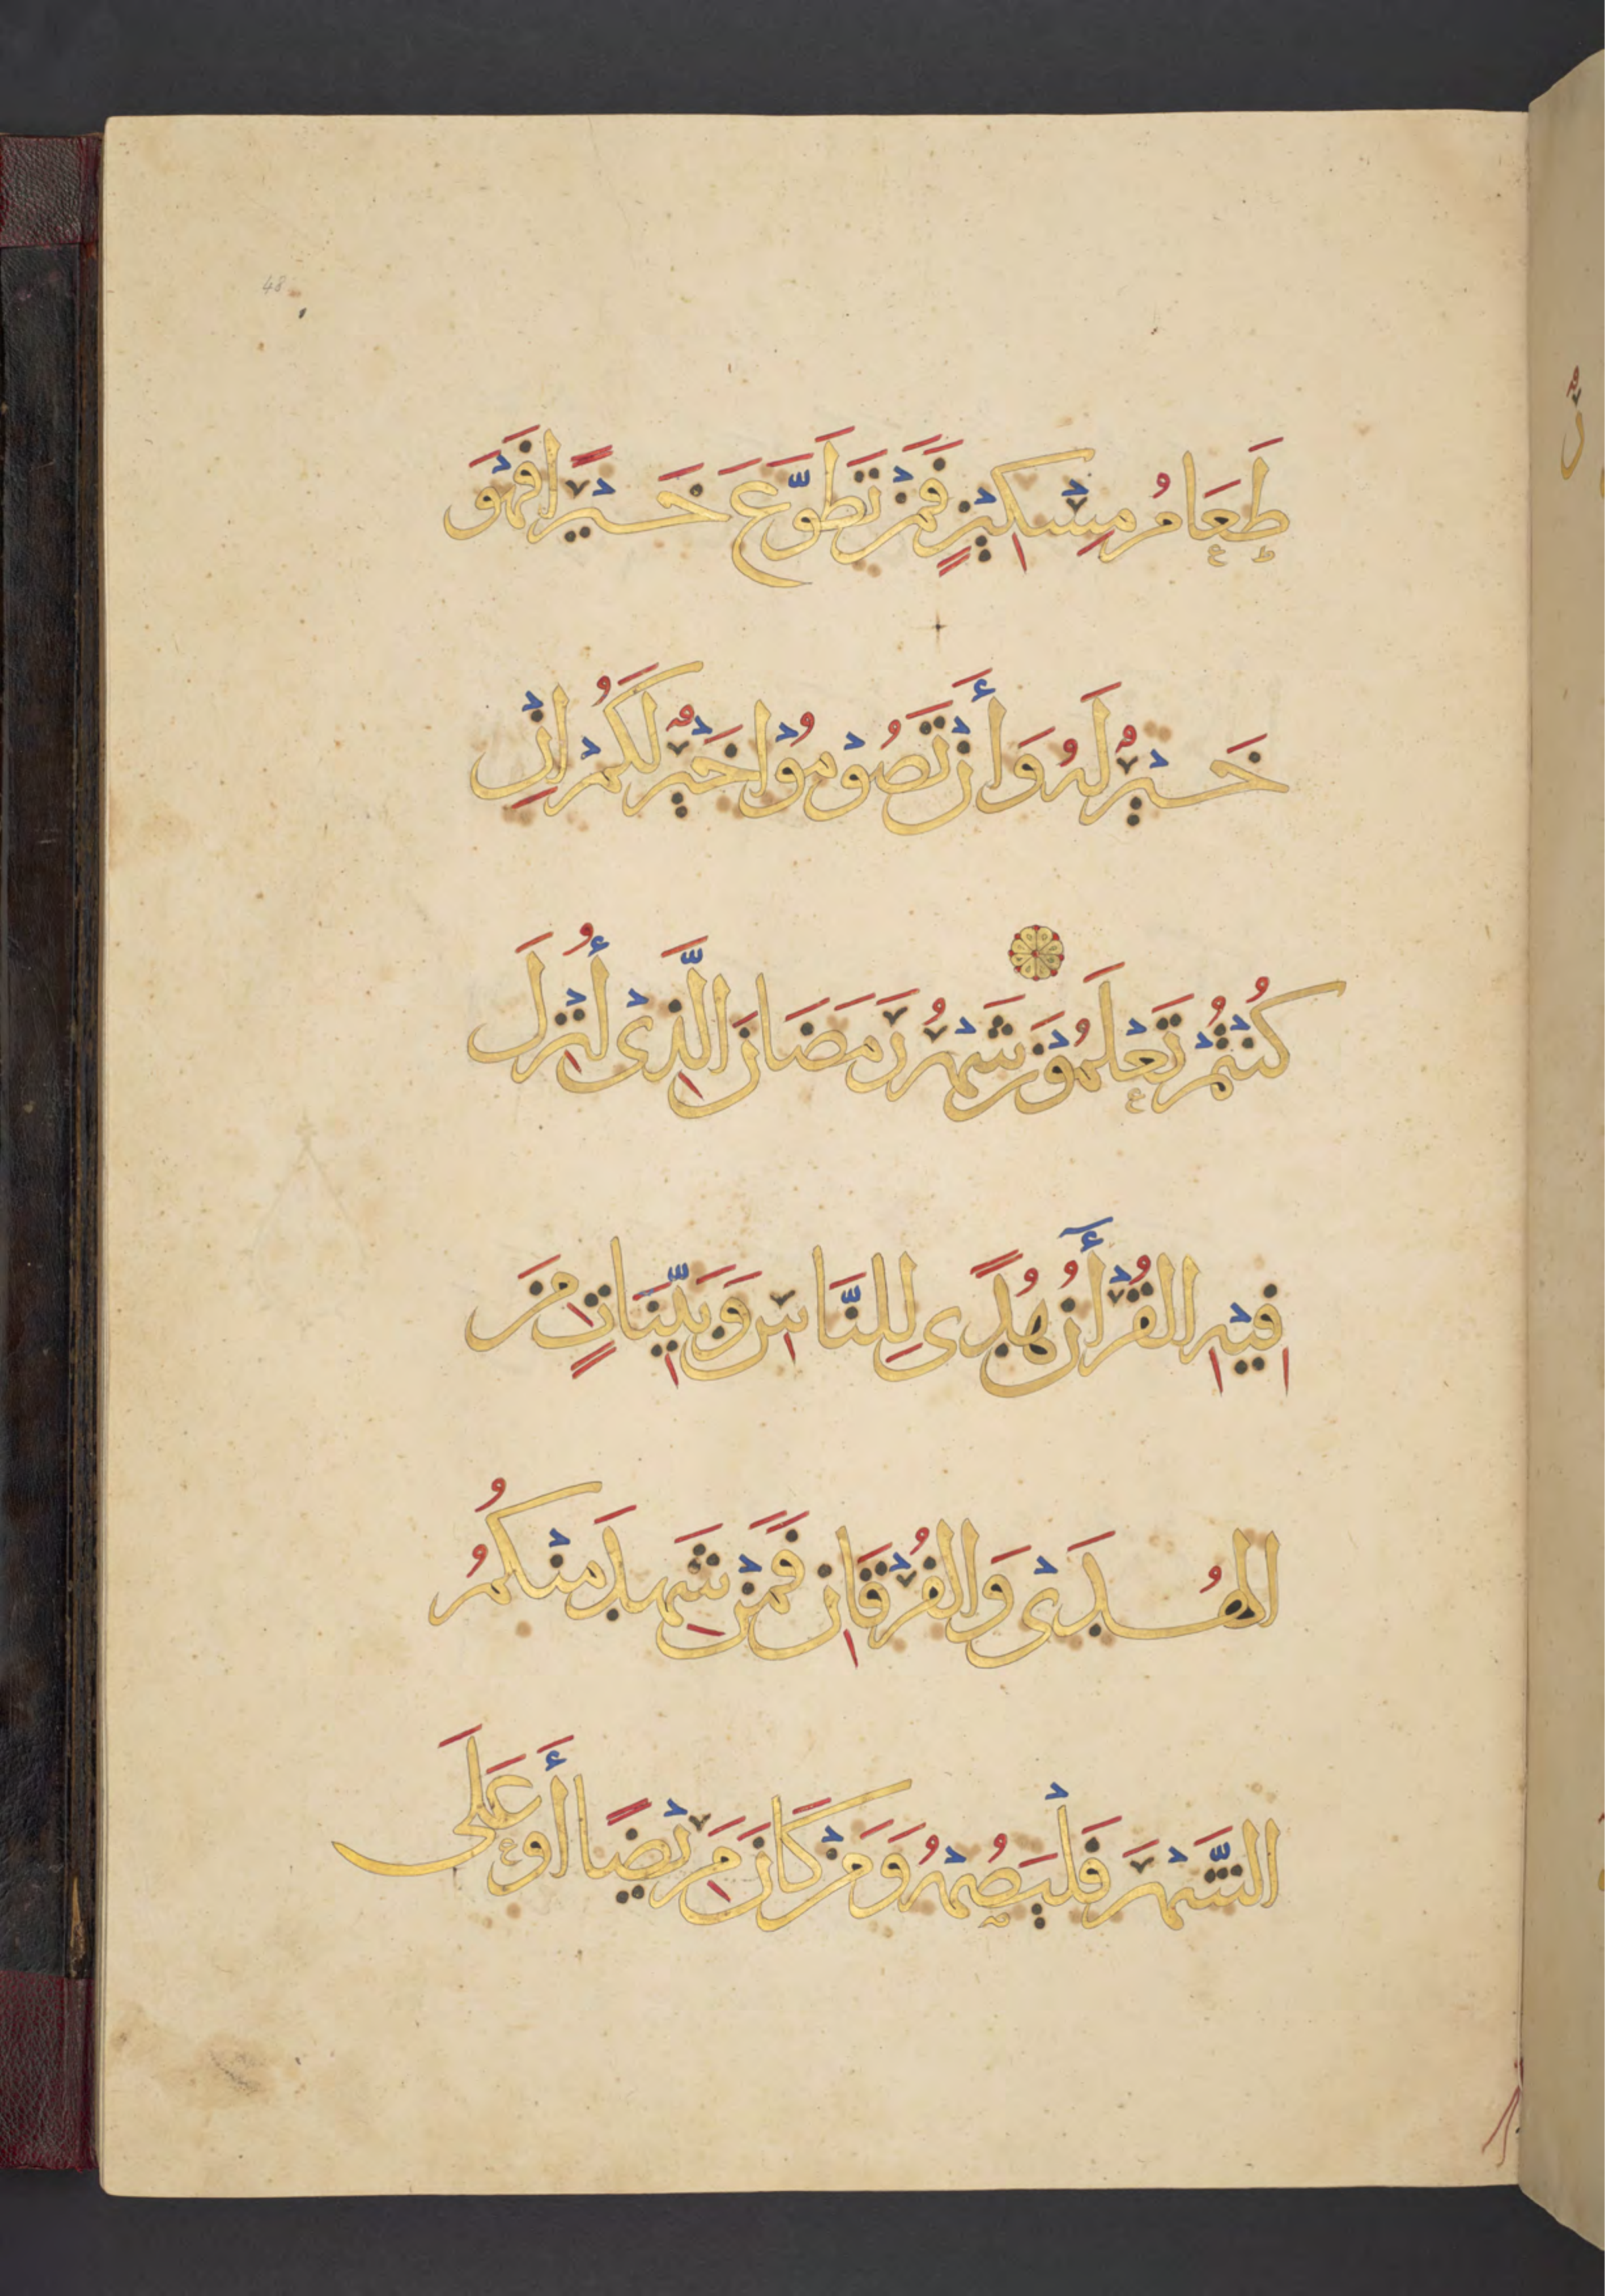 48
طَعَامُ مِسْكِيْنٍ فَمَنْ تَطَوَّعَ خَيْرًا فَهُوَ
خَيْرٌ لَهُ وَأَنْ تَصُوْمُوْا خَيْرٌ لَكُمْ اِنْ
كُنْتُمْ تَعْلَمُوْنَ شَهْرُ رَمَضَانَ الَّذِىْ أُنْزِلَ
فِيْهِ الْقُرْأٓنُ هُدًى لِلنَّاسِ وَبَيِّنَاتٍ مِنَ
الهُدَىْ وَالفُرْقَانِ فَمَنْ شَهِدَ مِنْكُمُ
الشَّهْرَ فَلْيَصُمْهُ وَمَنْ كَانَ مَرِيْضًا أَوْ عَلَى